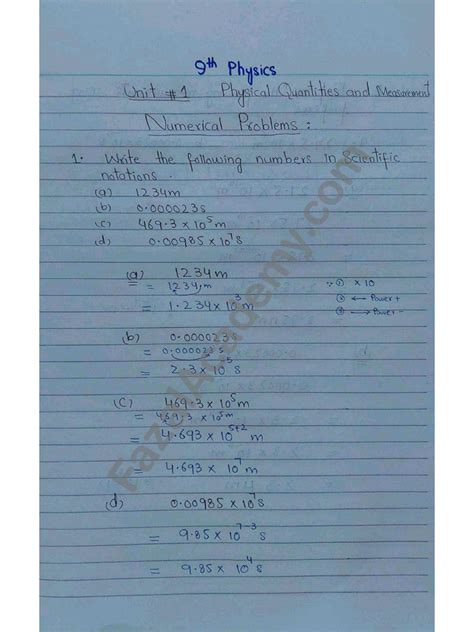 9th Physics
Unit #1 Physical Quantities and Measurement
Numerical Problems :
1. Write the following numbers in Scientific
notations.
(a) 1234m
(b) 0.000023s
(c) 469.3 x 10⁵ m
(d) 0.00985 x 10⁷ s
(a) 1234m
= 1234.m ∵ ① x 10
= 1.234 x 10³ m ② ← Power +
③ → Power -
(b) 0.000023s
= 0.000023s
= 2.3 x 10⁻⁵ s
(c) 469.3 x 10⁵ m
= 469.3 x 10⁵ m
= 4.693 x 10⁵⁺² m
= 4.693 x 10⁷ m
(d) 0.00985 x 10⁷ s
= 9.85 x 10⁷⁻³ s
= 9.85 x 10⁴ s